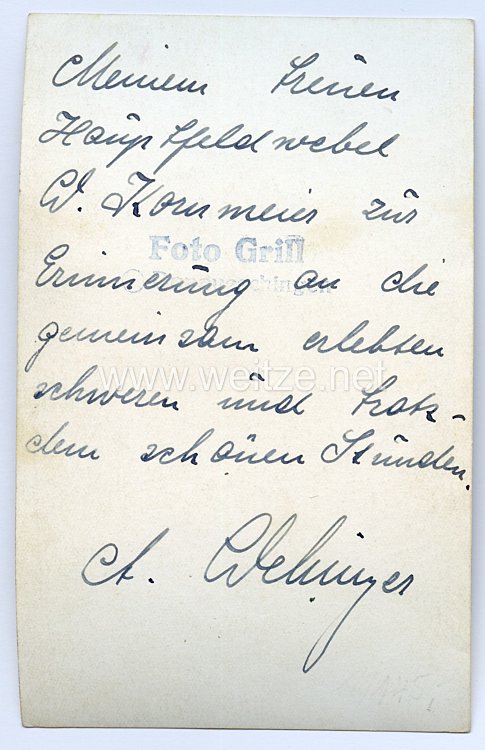 Meinem treuen
Hauptfeldwebel
W. Kornmeier zur
Foto Grill
Erinnerung an die
gemeinsam erlebten
www.weitze.net
schweren und trotz-
dem schönen Stunden.
A. Wehinger